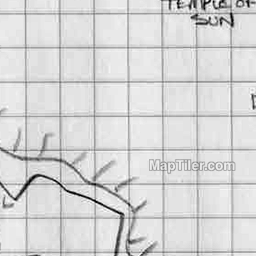 TEMPLE OF
SUN
MapTiler.com